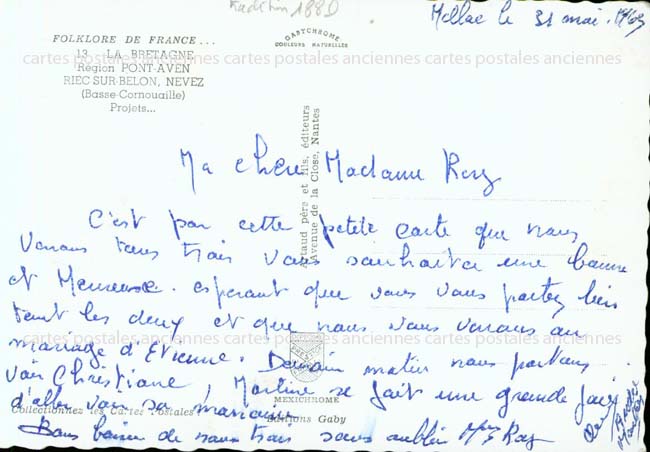 Tradition 1880
Mellac le 31 mai 1969
FOLKLORE DE FRANCE...
13. - LA BRETAGNE
Région PONT-AVEN
RIEC-SUR-BELON, NEVEZ
(Basse-Cornouaille)
Projets...
GABYCHROME
COULEURS NATURELLES
cartes postales anciennes cartes postales anciennes cartes postales anciennes
Artaud père et fils, éditeurs
Avenue de la Close, Nantes
Ma chère Madame Roy
C'est par cette petite carte que nous
venons tous trois vous souhaiter une bonne
et Heureuse. esperant que vous vous portez bien
tout les deux et que nous vous verons au
cartes postales anciennes cartes postales anciennes cartes postales anciennes
mariage d'Etienne. Demain matin nous partons
voir Christiane, Martine se fait une grande joie
d'aller voir sa marraine
MEXICHROME
Collectionnez les Cartes Postales
Editions Gaby
Bons baisers de nous trois sans oublier Mr Roy